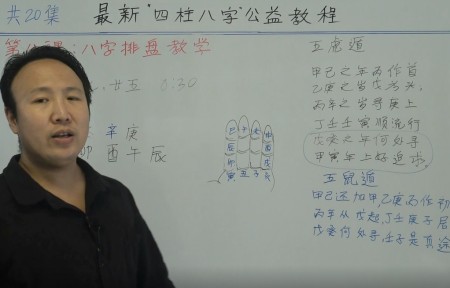 共20集 最新"四柱八字"公益教程
第八课:八字排盘教学
廿五 0:30
辛庚
卯酉午辰
巳午未申
辰酉
卯戌
寅丑子亥
五虎遁
甲己之年丙作首
乙庚之岁戊为头
丙辛之岁寻庚上
丁壬壬寅顺流行
戊癸之年何处寻
甲寅年上好追求
五鼠遁
甲己还加甲,乙庚丙作初
丙辛从戊起,丁壬庚子居
戊癸何处寻,壬子是真途